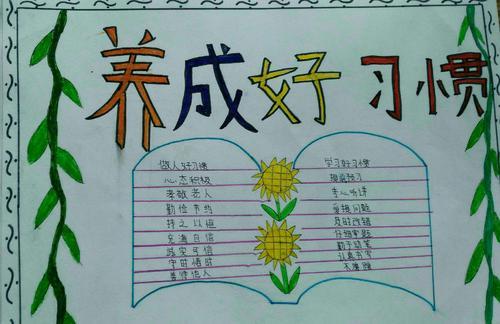 养成好习惯
做人好习惯
心态积极
孝敬老人
勤俭节约
持之以恒
充满自信
诚实可信
守时惜时
善待他人
学习好习惯
课前预习
专心听讲
及时改错
仔细审题
勤于动笔
认真书写
不磨蹭